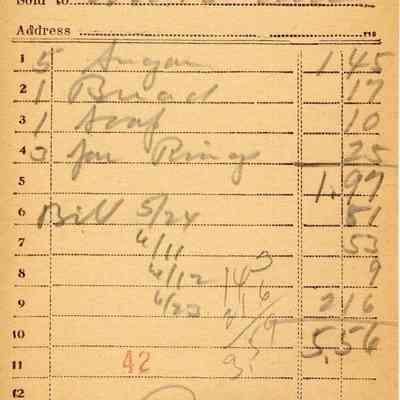 Sold to
Address
1 5 Sugar 1 45
2 1 Bread 17
3 1 Soap 10
4 3 Jar Rings 25
5 1.97
6 Bill 5/24 51
7 6/11 53
8 6/12 9
9 6/23 2 16
10 5.56
11 42
12